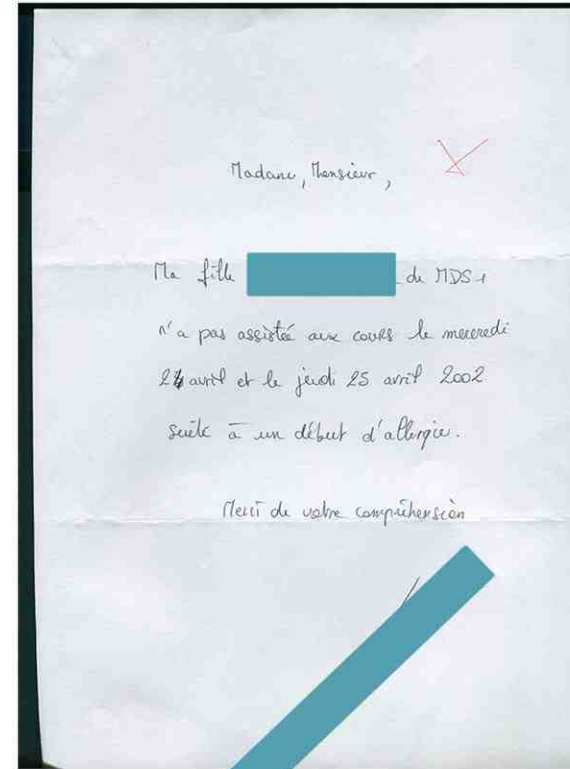 Madame, Monsieur,
Ma fille de MDS 1
n'a pas assistée aux cours le mercredi
24 avril et le jeudi 25 avril 2002
suite à un début d'allergie.
Merci de votre compréhension